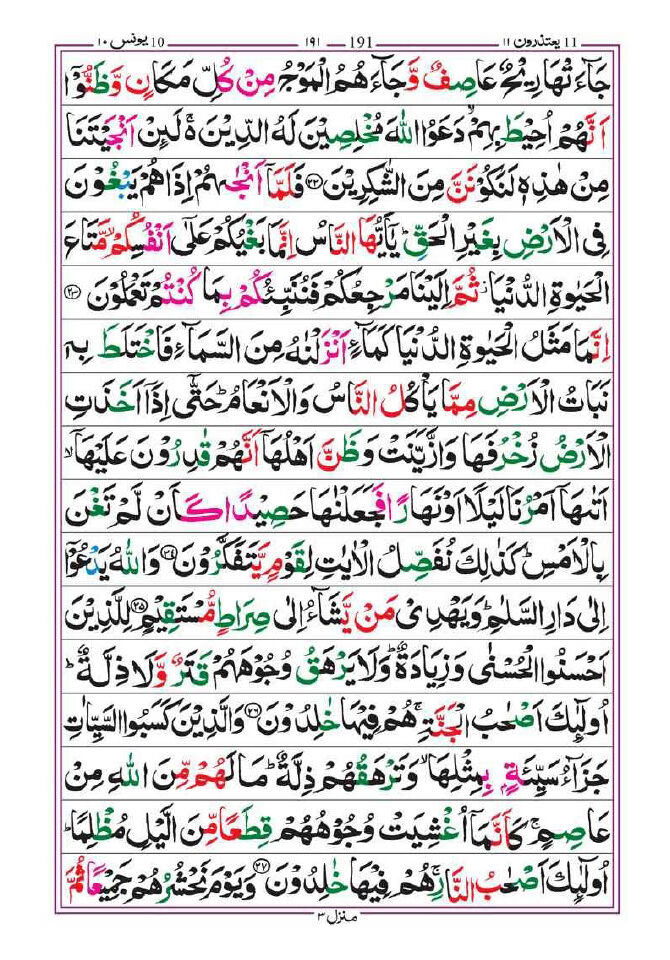 11 یعتذرون ۱۱ 191 ۱۹۱ 10 یونس ۱۰
جَآءَتْهَا رِيْحٌ عَاصِفٌ وَّجَآءَهُمُ الْمَوْجُ مِنْ كُلِّ مَكَانٍ وَّظَنُّوْۤا
اَنَّهُمْ اُحِيْطَ بِهِمْ ۙ دَعَوُا اللّٰهَ مُخْلِصِيْنَ لَهُ الدِّيْنَ ۬ۚ لَئِنْ اَنْجَيْتَنَا
مِنْ هٰذِهٖ لَنَكُوْنَنَّ مِنَ الشّٰكِرِيْنَ ﴿۲۲﴾ فَلَمَّاۤ اَنْجٰىهُمْ اِذَا هُمْ يَبْغُوْنَ
فِى الْاَرْضِ بِغَيْرِ الْحَقِّ ؕ يٰۤاَيُّهَا النَّاسُ اِنَّمَا بَغْيُكُمْ عَلٰۤى اَنْفُسِكُمْ ۙ مَّتَاعَ
الْحَيٰوةِ الدُّنْيَا ؗ ثُمَّ اِلَيْنَا مَرْجِعُكُمْ فَنُنَبِّئُكُمْ بِمَا كُنْتُمْ تَعْمَلُوْنَ ﴿۲۳﴾
اِنَّمَا مَثَلُ الْحَيٰوةِ الدُّنْيَا كَمَآءٍ اَنْزَلْنٰهُ مِنَ السَّمَآءِ فَاخْتَلَطَ بِهٖ
نَبَاتُ الْاَرْضِ مِمَّا يَاْكُلُ النَّاسُ وَالْاَنْعَامُ ؕ حَتّٰۤى اِذَاۤ اَخَذَتِ
الْاَرْضُ زُخْرُفَهَا وَازَّيَّنَتْ وَظَنَّ اَهْلُهَاۤ اَنَّهُمْ قٰدِرُوْنَ عَلَيْهَاۤ ۙ
اَتٰىهَاۤ اَمْرُنَا لَيْلًا اَوْ نَهَارًا فَجَعَلْنٰهَا حَصِيْدًا كَاَنْ لَّمْ تَغْنَ
بِالْاَمْسِ ؕ كَذٰلِكَ نُفَصِّلُ الْاٰيٰتِ لِقَوْمٍ يَّتَفَكَّرُوْنَ ﴿۲۴﴾ وَاللّٰهُ يَدْعُوْۤا
اِلٰى دَارِ السَّلٰمِ ؕ وَيَهْدِىْ مَنْ يَّشَآءُ اِلٰى صِرَاطٍ مُّسْتَقِيْمٍ ﴿۲۵﴾ لِلَّذِيْنَ
اَحْسَنُوا الْحُسْنٰى وَزِيَادَةٌ ؕ وَلَا يَرْهَقُ وُجُوْهَهُمْ قَتَرٌ وَّلَا ذِلَّةٌ ؕ
اُولٰٓئِكَ اَصْحٰبُ الْجَنَّةِ ۚ هُمْ فِيْهَا خٰلِدُوْنَ ﴿۲۶﴾ وَالَّذِيْنَ كَسَبُوا السَّيِّاٰتِ
جَزَآءُ سَيِّئَةٍۭ بِمِثْلِهَا ۙ وَتَرْهَقُهُمْ ذِلَّةٌ ؕ مَا لَهُمْ مِّنَ اللّٰهِ مِنْ
عَاصِمٍ ۚ كَاَنَّمَاۤ اُغْشِيَتْ وُجُوْهُهُمْ قِطَعًا مِّنَ الَّيْلِ مُظْلِمًا ؕ
اُولٰٓئِكَ اَصْحٰبُ النَّارِ ۚ هُمْ فِيْهَا خٰلِدُوْنَ ﴿۲۷﴾ وَيَوْمَ نَحْشُرُهُمْ جَمِيْعًا ثُمَّ
منزل ۳